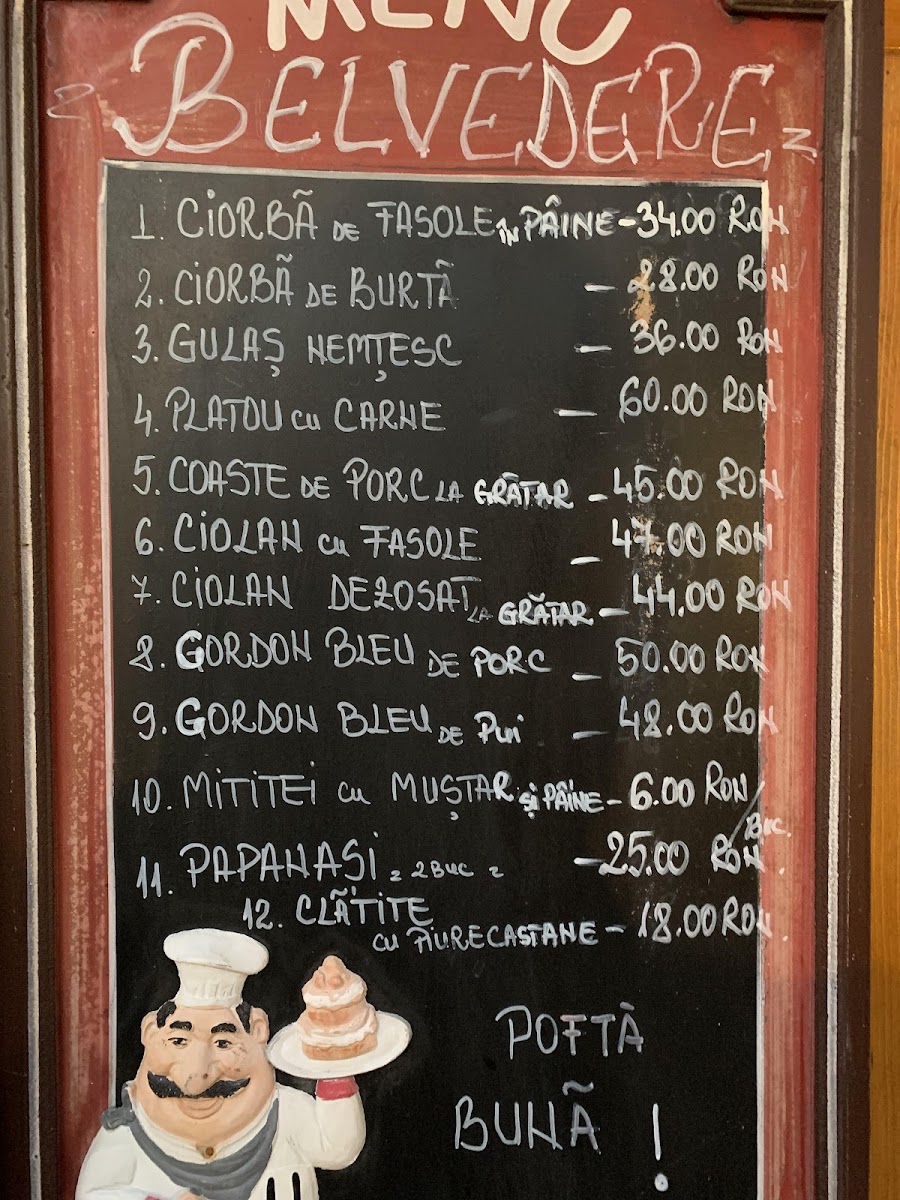 MENU
BELVEDERE
1. CiORBÃ DE FASOLE îN PÂINE - 34.00 RON
2. CiORBÃ DE BURTÃ - 28.00 RON
3. GULAȘ NEMȚESC - 36.00 RON
4. PLATOU cu CARNE - 60.00 RON
5. COASTE DE PORC LA GRÃTAR - 45.00 RON
6. CiOLAN cu FASOLE - 47.00 RON
7. CiOLAN DEZOSAT LA GRĂTAR - 44.00 RON
8. GORDON BLEU DE PORC - 50.00 RON
9. GORDON BLEU DE Pui - 48.00 RON
10. MiTiTEi cu MUȘTAR și PÂiNE - 6.00 RON/BUC.
11. PAPANAȘi = 2 BUC = - 25.00 RON.
12. CLÃTiTE
cu PiURE CASTANE - 18.00 RON.
POFTÃ
BUNÃ !